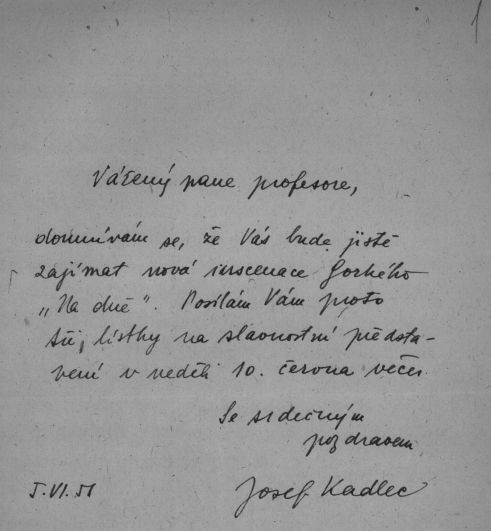 1
Vážený pane profesore,
domnívám se, že Vás bude jistě
zajímat nová inscenace Gorkého
„Na dně". Posílám Vám proto
lístky na slavnostní předsta-
vení v neděli 10. června večer.
Se srdečným
pozdravem
5.VI.51 Josef Kadlec